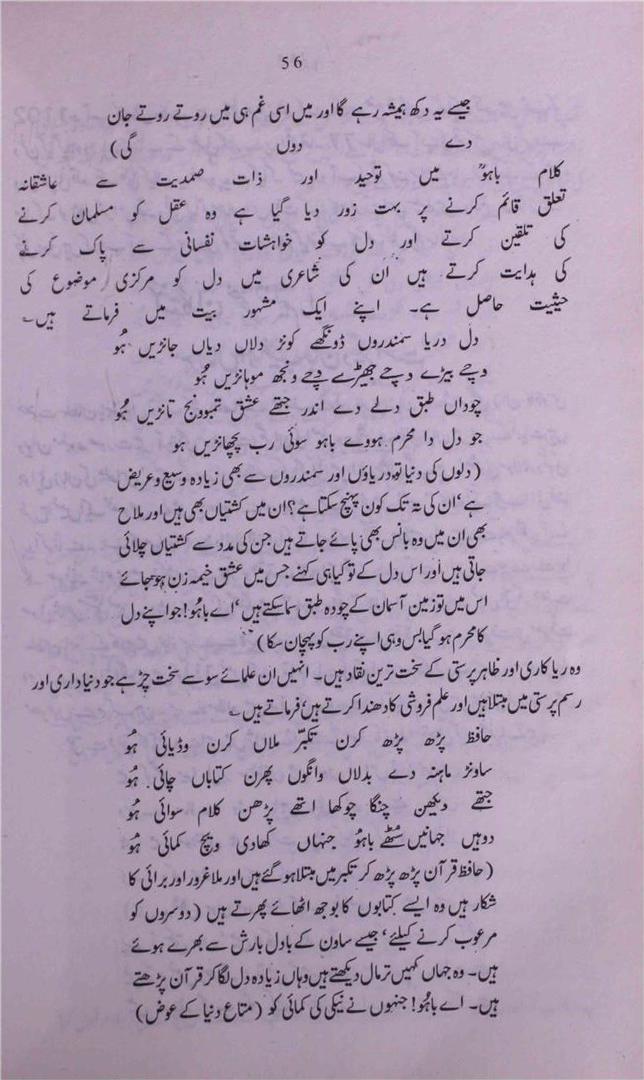 56
جیسے یہ دکھ ہمیشہ رہے گا اور میں اسی غم ہی میں روتے روتے جان
دے دوں گی)
کلام باہوؒ میں توحید اور ذات صمدیت سے عاشقانہ
تعلق قائم کرنے پر بہت زور دیا گیا ہے وہ عقل کو مسلمان کرنے
کی تلقین کرتے اور دل کو خواہشات نفسانی سے پاک کرنے
کی ہدایت کرتے ہیں ان کی شاعری میں دل کو مرکزی موضوع کی
حیثیت حاصل ہے۔ اپنے ایک مشہور بیت میں فرماتے ہیں۔
دل دریا سمندروں ڈونگھے کونڑ دلاں دیاں جانڑیں ہُو
وچے بیڑے وچے جھیڑے وچے ونجھ موہانڑیں ہُو
چوداں طبق دلے دے اندر جتھے عشق تمبوونج تانڑیں ہُو
جو دل دا محرم ہووے باہو سوئی رب پچھانڑیں ہو
(دلوں کی دنیا تو دریاؤں اور سمندروں سے بھی زیادہ وسیع و عریض
ہے‘ ان کی تہ تک کون پہنچ سکتا ہے؟ ان میں کشتیاں بھی ہیں اور ملاح
بھی ان میں وہ بانس بھی پائے جاتے ہیں جن کی مدد سے کشتیاں چلائی
جاتی ہیں اور اس دل کے تو کیا ہی کہنے جس میں عشق خیمہ زن ہو جائے
اس میں تو زمین آسمان کے چودہ طبق سما سکتے ہیں‘ اے باہُو! جو اپنے دل
کا محرم ہو گیا بس وہی اپنے رب کو پہچان سکا)
وہ ریا کاری اور ظاہر پرستی کے سخت ترین نقاد ہیں۔ انہیں ان علمائے سو سے سخت چڑ ہے جو دنیا داری اور
رسم پرستی میں مبتلا ہیں اور علم فروشی کا دھندا کرتے ہیں‘ فرماتے ہیں۔
حافظ پڑھ پڑھ کرن تکبّر ملاں کرن وڈیائی ہُو
ساونڑ ماہنہ دے بدلاں وانگوں پھرن کتاباں چائی ہُو
جتھے دیکھن چنگا چوکھا اتھے پڑھن کلام سوائی ہُو
دوہیں جہانیں مُٹھے باہُو جنہاں کھادی ویچ کمائی ہُو
(حافظ قرآن پڑھ پڑھ کر تکبر میں مبتلا ہو گئے ہیں اور ملا غرور اور برائی کا
شکار ہیں وہ ایسے کتابوں کا بوجھ اٹھائے پھرتے ہیں (دوسروں کو
مرعوب کرنے کیلئے‘ جیسے ساون کے بادل بارش سے بھرے ہوئے
ہیں۔ وہ جہاں کہیں تر مال دیکھتے ہیں وہاں زیادہ دل لگا کر قرآن پڑھتے
ہیں۔ اے باہُو! جنہوں نے نیکی کی کمائی کو (متاع دنیا کے عوض)